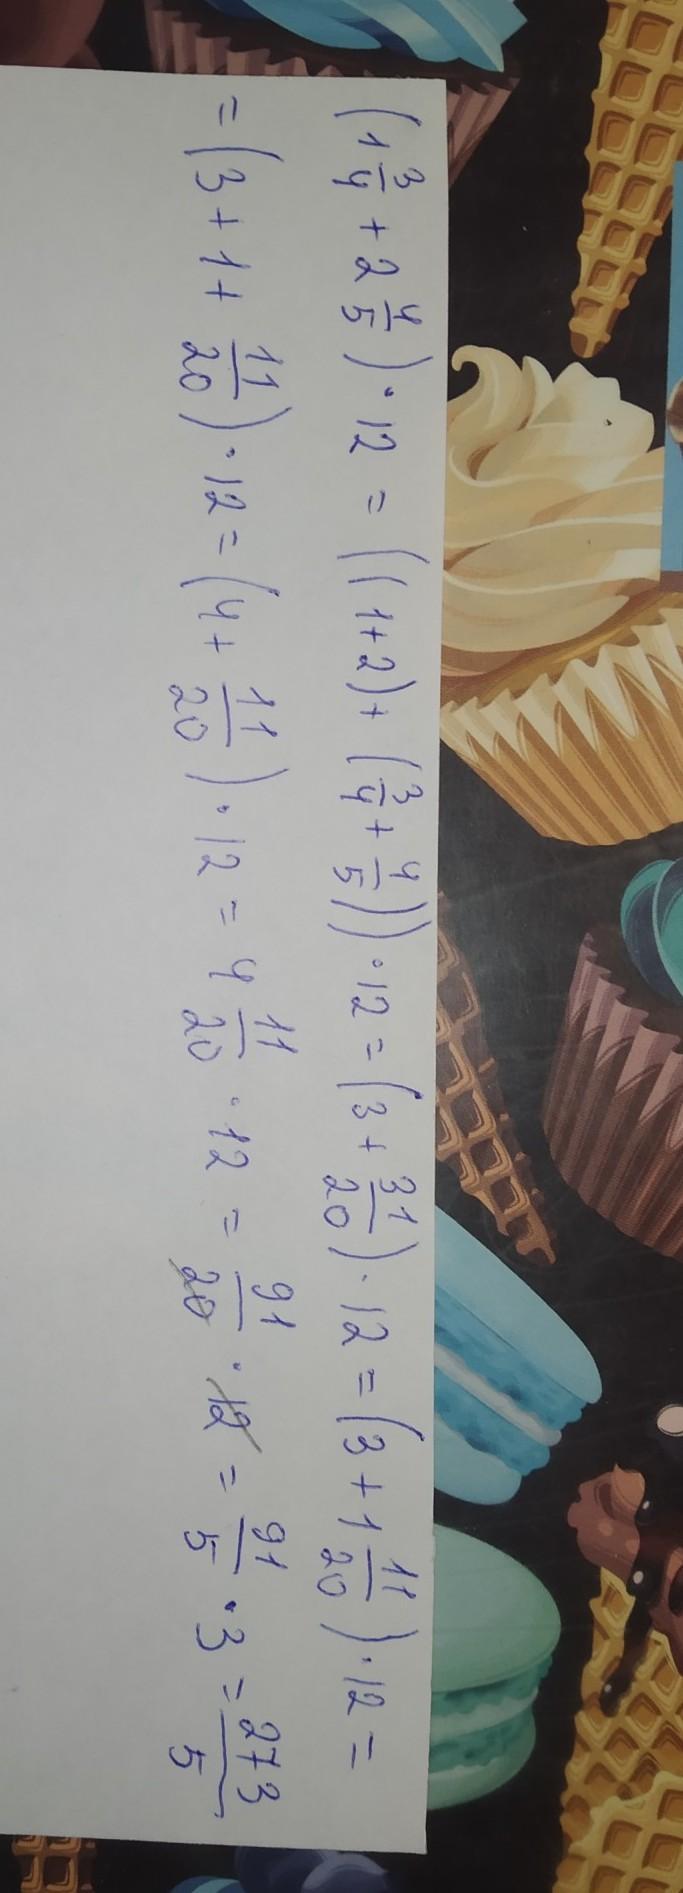 (1 3/4 + 2 4/5) · 12 = ((1+2) + (3/4 + 4/5)) · 12 = (3 + 31/20) · 12 = (3 + 1 11/20) · 12 =
= (3 + 1 + 11/20) · 12 = (4 + 11/20) · 12 = 4 11/20 · 12 = 91/20 · 12 = 91/5 · 3 = 273/5